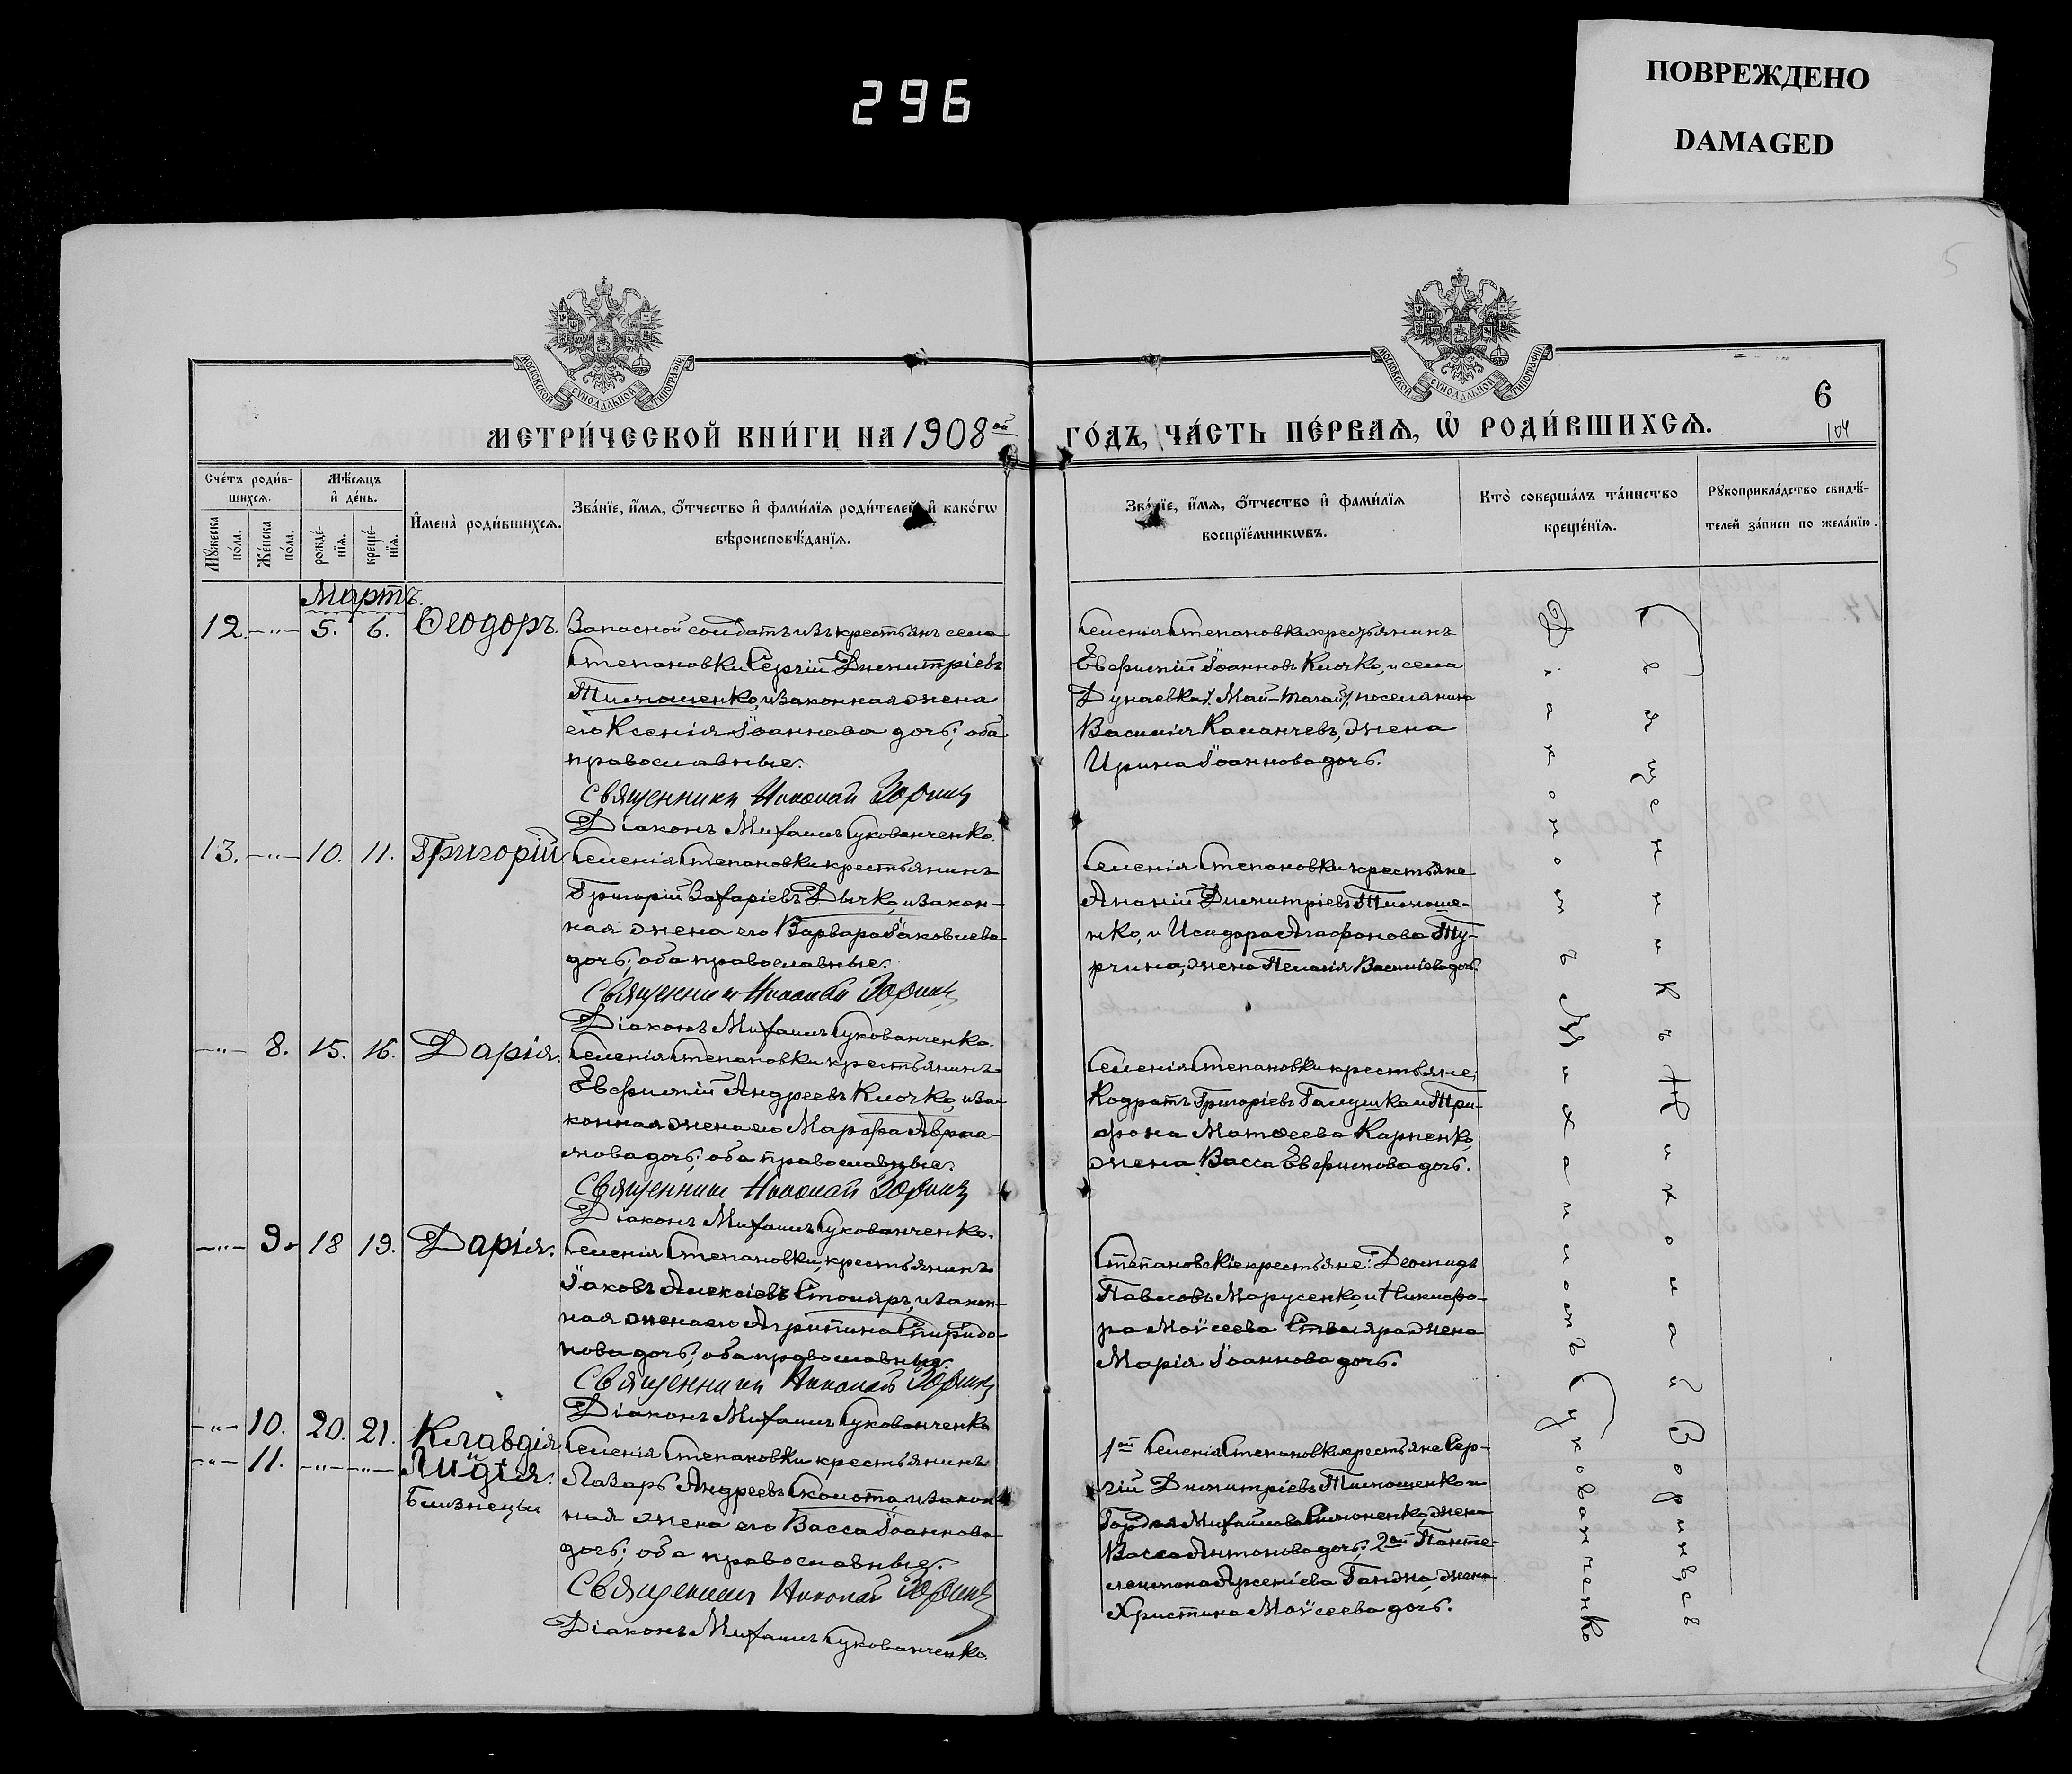 296
ПОВРЕЖДЕНО
DAMAGED
5
МОСКОВСКОЙ СѴНОДАЛЬНОЙ ТИПОГРАФІИ
МОСКОВСКОЙ СѴНОДАЛЬНОЙ ТИПОГРАФІИ
6
104
МЕТРИ́ЧЕСКОЙ КНИ́ГИ НА 1908ой ГО́ДЪ, ЧА́СТЬ ПЕ́РВАѦ, Ѡ҆ РОДИ́ВШИХСѦ.
Сче́тъ роди́в-
шихсѧ.
Мѣ́сѧцъ
и҆ де́нь.
Мꙋ́жеска по́ла.
Же́нска по́ла.
рожде́-
нїѧ.
креще́-
нїѧ.
И҆мена̀ роди́вшихсѧ.
Зва́нїе, и҆́мѧ, ѻ҆́тчество и҆ фами́лїѧ роди́телей, и҆ како́гѡ
вѣроисповѣ́данїѧ.
Зва́нїе, и҆́мѧ, ѻ҆́тчество и҆ фами́лїѧ
воспрїе́мникѡвъ.
Кто̀ соверша́лъ та́инство
креще́нїѧ.
Рꙋкоприкла́дство свидѣ́-
телей за́писи по жела́нїю.
Мартъ.
12. —"— 5. 6. Ѳеодоръ.
Запасной солдатъ изъ крестьянъ села
Степановки Сергій Димитріевъ
Тимошенко, и законная жена
его Ксенія Іоаннова дочь; оба
православные.
Священникъ Николай Воринц
Діаконъ Михаилъ Сукованченко.
Селенія Степановки крестьянинъ
Евфимій Іоанновъ Клочко, и села
Дунаевки /Май-тагай/ поселянина
Василія Каманчевъ, жена
Ирина Іоаннова дочь.
13. —"— 10. 11. Григорій
Селенія Степановки крестьянинъ
Григорій Захаріевъ Дычко, и закон-
ная жена его Варвара Іаковлева
дочь; оба православные.
Священникъ Николай Воринц
Діаконъ Михаилъ Сукованченко.
Селенія Степановки крестьяне
Ананій Димитріевъ Тимоше-
нко, и Исидора Агафонова Ту-
рчина, жена Пелагія Василіева дочь.
—"— 8. 15. 16. Дарія.
Селенія Степановки крестьянинъ
Евфимій Андреевъ Клочко, и за-
конная жена его Марфа Авраа-
мова дочь; оба православные.
Священникъ Николай Воринц
Діаконъ Михаилъ Сукованченко.
Селенія Степановки крестьяне:
Кодратъ Григоріевъ Галушка и Три-
фона Матѳеева Карпенко,
жена Васса Евфимова дочь.
—"— 9. 18 19. Дарія.
Селенія Степановки, крестьянинъ
Іаковъ Алексіевъ Столяръ, и закон-
ная жена его Агрипина Спиридо-
нова дочь; оба православные.
Священникъ Николай Воринц
Діаконъ Михаилъ Сукованченко
Степановскіе крестьяне: Леонидъ
Павловъ Марусенко, и Никифо-
ра Моѵсеева Столяра жена
Марія Іоаннова дочь.
—"— 10. 20. 21. Клавдія.
—"— 11. —"— —"— Лидія.
Близнецы
Селенія Степановки крестьянинъ
Лазарь Андреевъ Сколота, и закон-
ная жена его Васса Іоаннова
дочь; оба православные.
Священникъ Николай Воринц
Діаконъ Михаилъ Сукованченко.
1ой Селенія Степановки крестьяне Сер-
гій Димитріевъ Тимошенко и
Гордея Михайлова Симоненко, жена
Васса Антонова дочь; 2ой Панте-
леимона Арсеніева Ганжа, жена
Христина Моѵсеева дочь.
Священникъ Николай Воринцев
Діакономъ Михаиломъ Сукованченко